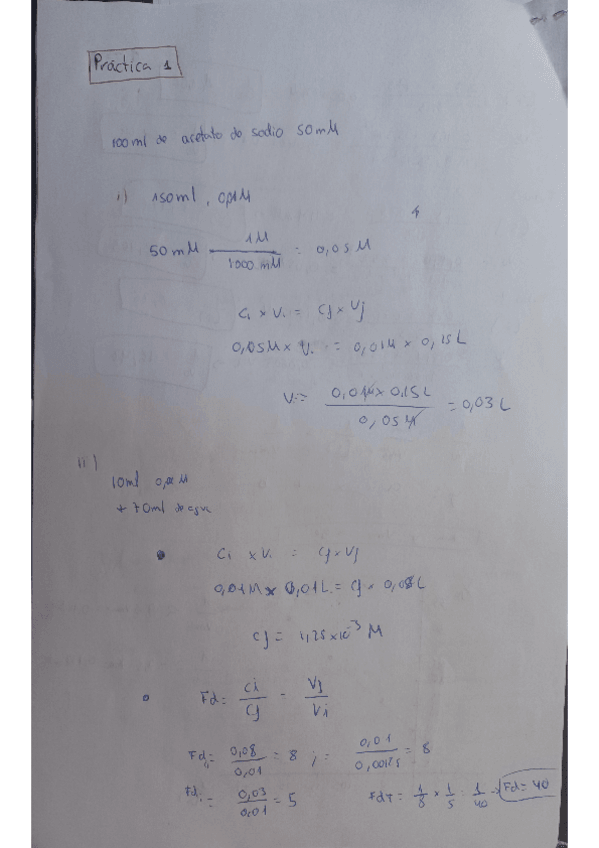 Práctica 1
100ml de acetato de sodio 50mM
i) 150ml, 0,01M
50 mM 1M / 1000 mM = 0,05 M
Ci × Vi = Cf × Vf
0,05M × Vi = 0,01M × 0,15L
Vi = 0,01M × 0.15L / 0,05M = 0,03 L
ii)
10ml 0,01M
+ 70ml de agua
Ci × Vi = Cf × Vf
0,01M × 0,01L = Cf × 0,08L
Cf = 1,25×10⁻³ M
Fd = Ci / Cf = Vf / Vi
Fd = 0,08 / 0,01 = 8 ; = 0,01 / 0,00125 = 8
Fd = 0,03 / 0,01 = 5 FdT = 1/8 × 1/5 = 1/40 → Fd = 40